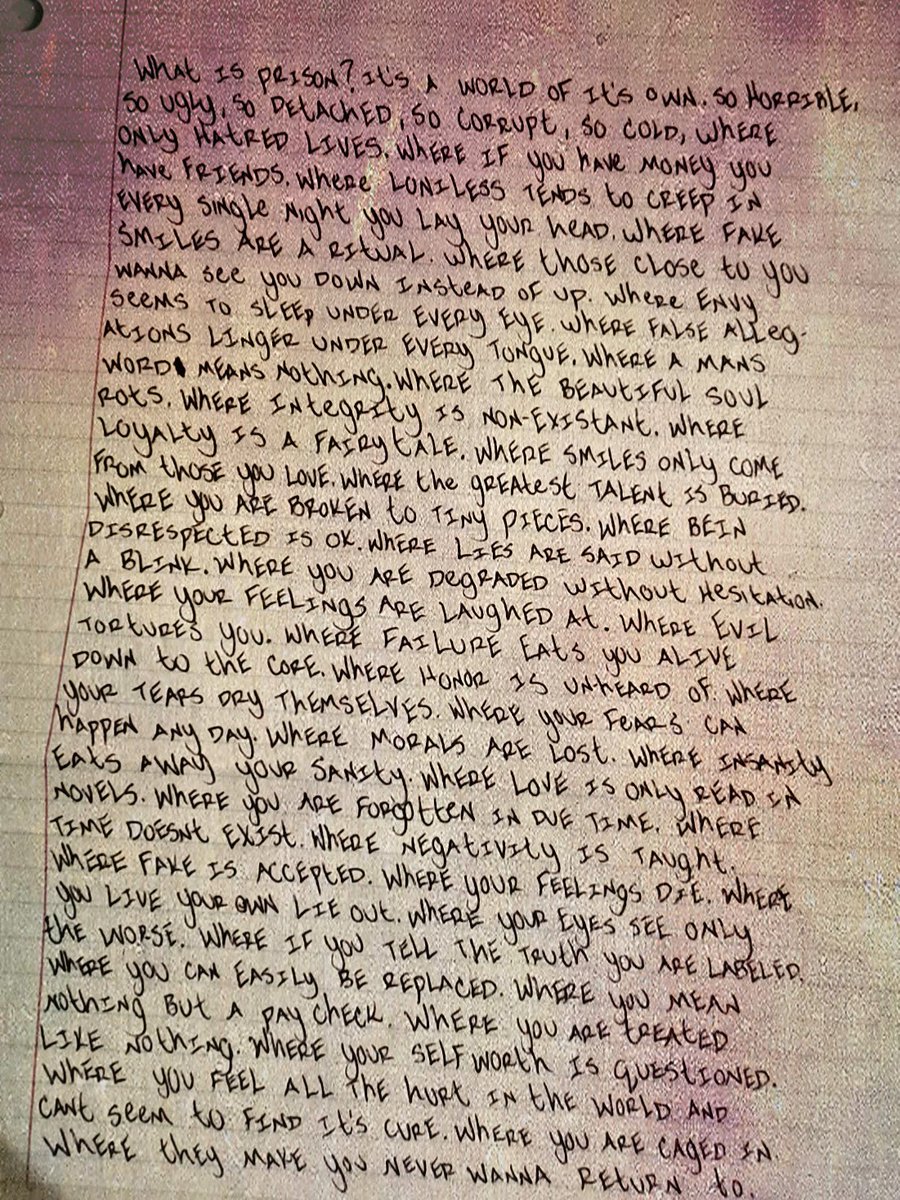 What is prison? It's a world of it's own. So horrible,
so ugly, so detached, so corrupt, so cold, where
only hatred lives. Where if you have money you
have friends. Where loniless tends to creep in
every single night you lay your head. Where fake
smiles are a ritual. Where those close to you
wanna see you down instead of up. Where envy
seems to sleep under every eye. Where false alleg-
ations linger under every tongue. Where a mans
word means nothing. Where the beautiful soul
rots. Where integrity is non-existant. Where
loyalty is a fairytale. Where smiles only come
from those you love. Where the greatest talent is buried.
Where you are broken to tiny pieces. Where bein
disrespected is ok. Where lies are said without
a blink. Where you are degraded without hesitation.
Where your feelings are laughed at. Where evil
tortures you. Where failure eats you alive
down to the core. Where honor is un-heard of. Where
your tears dry themselves. Where your fears can
happen any day. Where morals are lost. Where insanity
eats away your sanity. Where love is only read in
novels. Where you are forgotten in due time. Where
time doesnt exist. Where negativity is taught.
Where fake is accepted. Where your feelings die. Where
you live your own lie out. Where your eyes see only
the worse. Where if you tell the truth you are labeled.
Where you can easily be replaced. Where you mean
nothing but a paycheck. Where you are treated
like nothing. Where your self worth is questioned.
Where you feel all the hurt in the world and
cant seem to find it's cure. Where you are caged in.
Where they make you never wanna return to.